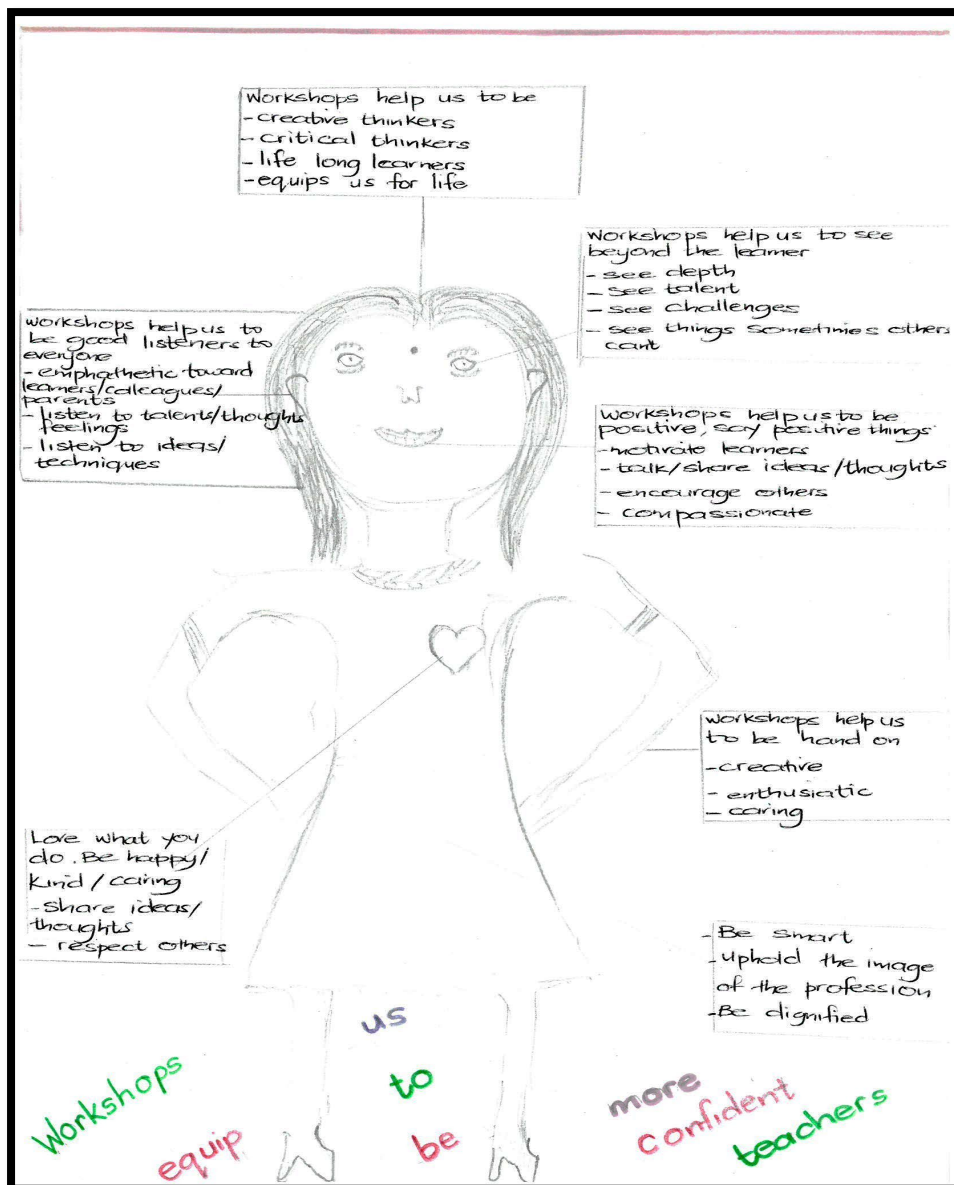 Workshops help us to be
- creative thinkers
- critical thinkers
- life long learners
- equips us for life
Workshops help us to see
beyond the learner
- see depth
- see talent
- see challenges
- see things sometimies others
cant
workshops help us to
be good listeners to
everyone
- emphathetic toward
learners/colleagues/
parents
- listen to talents/thoughts
feelings
- listen to ideas/
techniques
Workshops help us to be
positive, say positive things
- motivate learners
- talk/share ideas/thoughts
- encourage others
- compassionate
workshops help us
to be hand on
- creative
- enthusiatic
- caring
Love what you
do. Be happy/
kind/caring
- share ideas/
thoughts
- respect others
- Be smart
- uphold the image
of the profession
- Be dignified
Workshops equip us to be more confident teachers